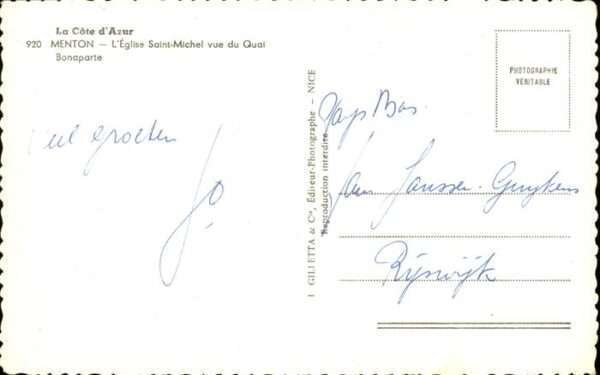 La Côte d'Azur
920 MENTON — L'Église Saint-Michel vue du Quai
Bonaparte
groeten
Jo
J GILLETTA & Cie, Éditeur-Photographe - NICE
Reproduction interdite
PHOTOGRAPHIE
VÉRITABLE
Pays Bas.
Janssen-
Rijswijk